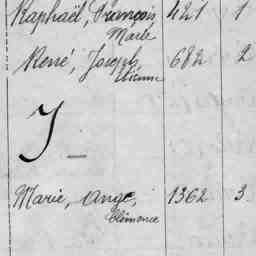 Raphaël, François 421 1
Marie
René, Joseph, 682 2
Etienne
J —
Marie, Ange, 1362 3
Clémence